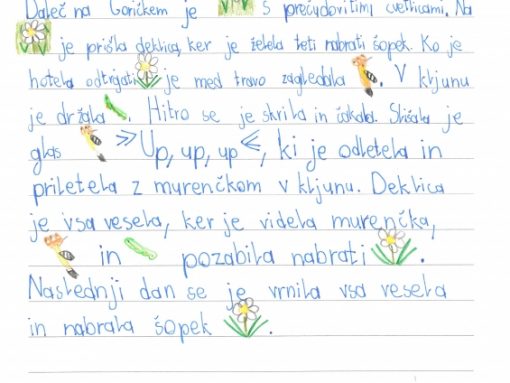 Daleč na Goričkem je s prečudovitimi cvetlicami. Na
je prišla deklica, ker je želela teti nabrati šopek. Ko je
hotela odtrgati je med travo zagledala . V kljunu
je držala . Hitro se je skrila in čakala. Slišala je
glas »Up, up, up«, ki je odletela in
priletela z murenčkom v kljunu. Deklica
je vsa vesela, ker je videla murenčka,
in pozabila nabrati .
Naslednji dan se je vrnila vsa vesela
in nabrala šopek .